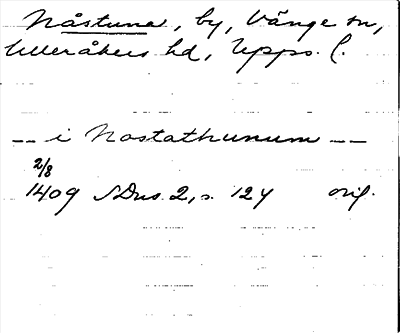 Nåstuna, by, Vänge sn,
Ulleråkers hd, Upps. l.
-- i Nastathunum --
2/8
1409 SDns 2, s. 124 orig.